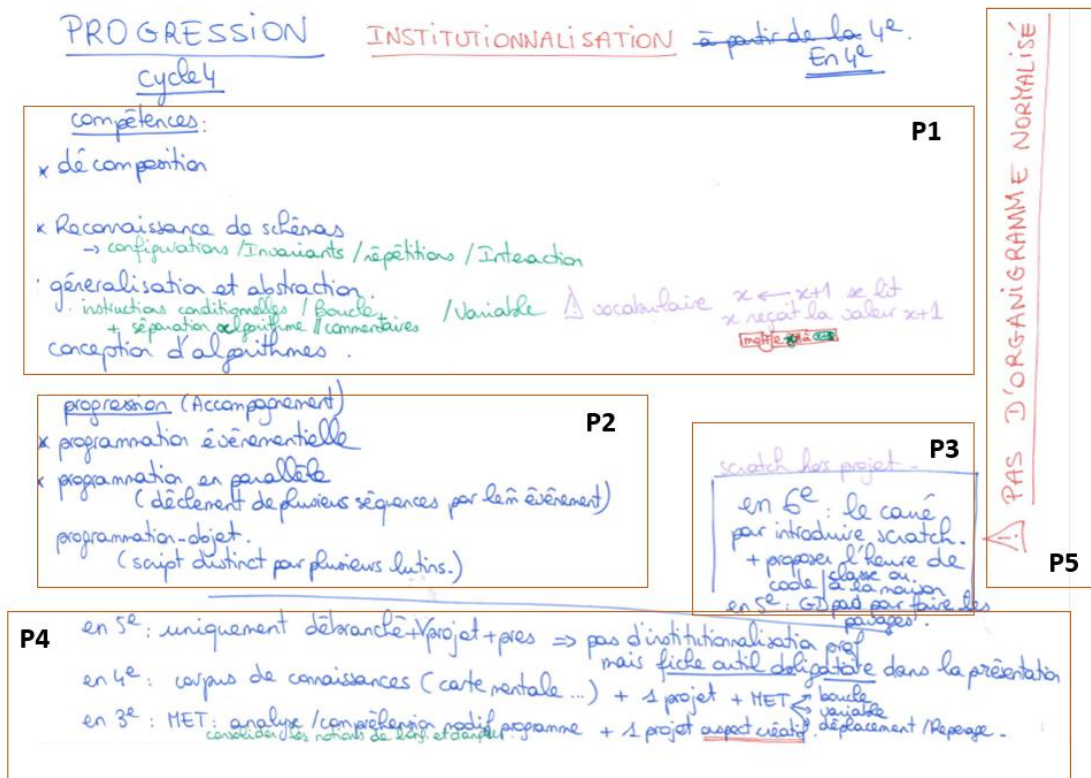 PROGRESSION INSTITUTIONNALISATION à partir de la 4e.
cycle4 En 4e
compétences: P1
x décomposition
x Reconnaissance de schémas
→ configurations / Invariants / répétitions / Interaction
généralisation et abstraction.
instructions conditionnelles / Boucles / Variable ⚠ vocabulaire x ← x+1 se lit
+ séparation algorithme // commentaires x reçoit la valeur x+1
mettre à
conception d'algorithmes.
progression (Accompagnement) P2
x programmation évènementielle
x programmation en parallèle
(déclement de plusieurs séquences par le m̂ évènement)
programmation-objet.
(script distinct pour plusieurs lutins.)
P3
scratch hors projet -
en 6e : le carré
pour introduire scratch.
+ proposer l'heure de
code / classe ou
à la maison
en 5e : GDpad pour faire les
pavages.
⚠ PAS D'ORGANIGRAMME NORMALISÉ
P5
P4
en 5e : uniquement débranché + 1 projet + pres ⇒ pas d'institutionnalisation prof
mais fiche outil obligatoire dans la présentation
en 4e : corpus de connaissances (carte mentale ...) + 1 projet + MET boucle
variable
déplacement / Repérage -
en 3e : MET : analyse / compréhension modif programme + 1 projet aspect créatif.
consolider les notions de